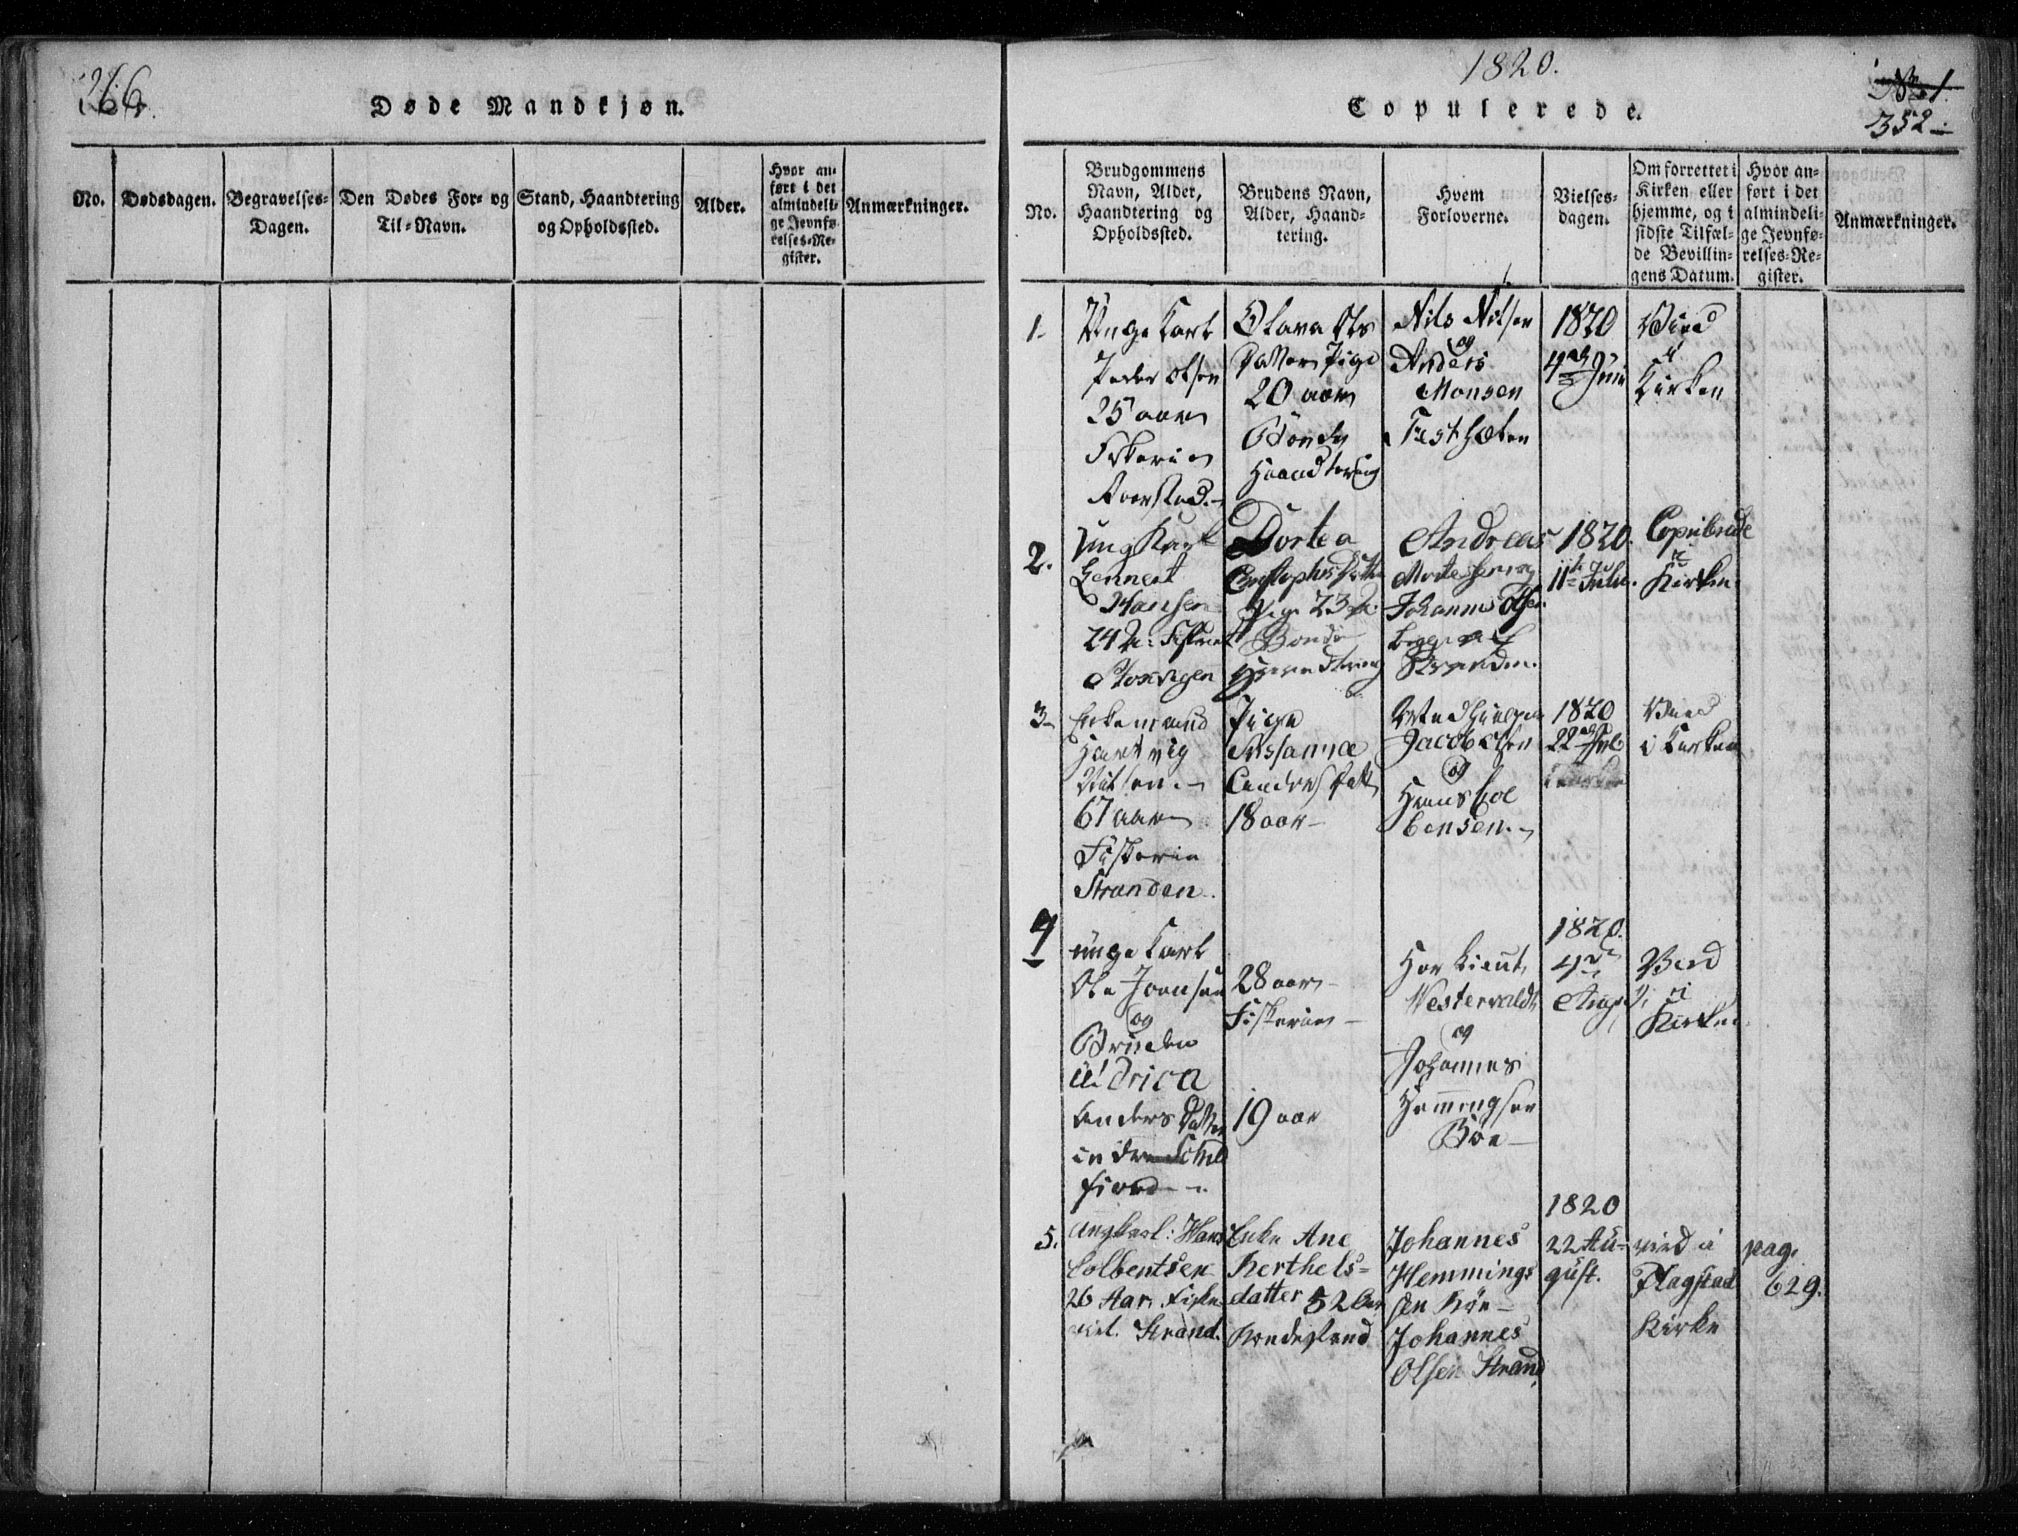 266.
Døde Mandkjøn.
No.
Dødsdagen.
Begravelses-
Dagen.
Den Dødes For- og
Til-Navn.
Stand, Haandtering
og Opholdssted.
Alder.
Hvor an-
ført i det
almindeli-
ge Jevnfø-
relses-Re-
gister.
Anmærkninger.
1820.
352
Copulerede.
No.
Brudgommens
Navn, Alder,
Haandtering og
Opholdssted.
Brudens Navn,
Alder, Haand-
tering.
Hvem
Forloverne.
Vielses-
dagen.
Om forrettet i
Kirken eller
hjemme, og i
sidste Tilfæl-
de Bevillin-
gens Datum.
Hvor an-
ført i det
almindeli-
ge Jevnfø-
relses-Re-
gister.
Anmærkninger.
1
Unge Karl
Peder Olsen
25 aar
Fiskerie
Olava Ols
Datter Pige
20 aar
Bonde
Haandtering
Nils Nilsen
og
Anders
Monsen
1820
4de Juni
Vied
i
Kirken
2.
ung Karl
Gennert
Hansen
24 Fiskerie
Dortea
Christophers Datter
Pige 23
Bonde
Haandtering
Andreas
Johannes Olsen
1820.
11te Julie.
Copulerede
i
Kirken
3
Enkemand
Hartvig
Nilsen
67 aar
Fiskerie
Stranden
Pige
Susanna
Anders Datt
18 aar
Jacob Olsen
og
Hans Col
bensen
1820
22 Jul
Vied
i Kirken
4
unge Karl
Ole Joensen
og
Bruden
Anders Datter
fiord
28 aar
Fiskerie
19 aar
Her Lieut.
Westervaldt
og
Johannes
Hemmingsen
Böe
1820.
4de
Aug
Vied
i
Kirken
5.
Ungkarl: Hans
Colbentsen
26 Aar, Fiske
Strand.
Enke Ane
Berthels-
datter 52 Aar
Bondestand
Johannes
Hemmings
sen Böe
Johannes
Olsen Strand
1820
22 Au-
gust.
vied i
Flagstad
Kirke
pag.
629.